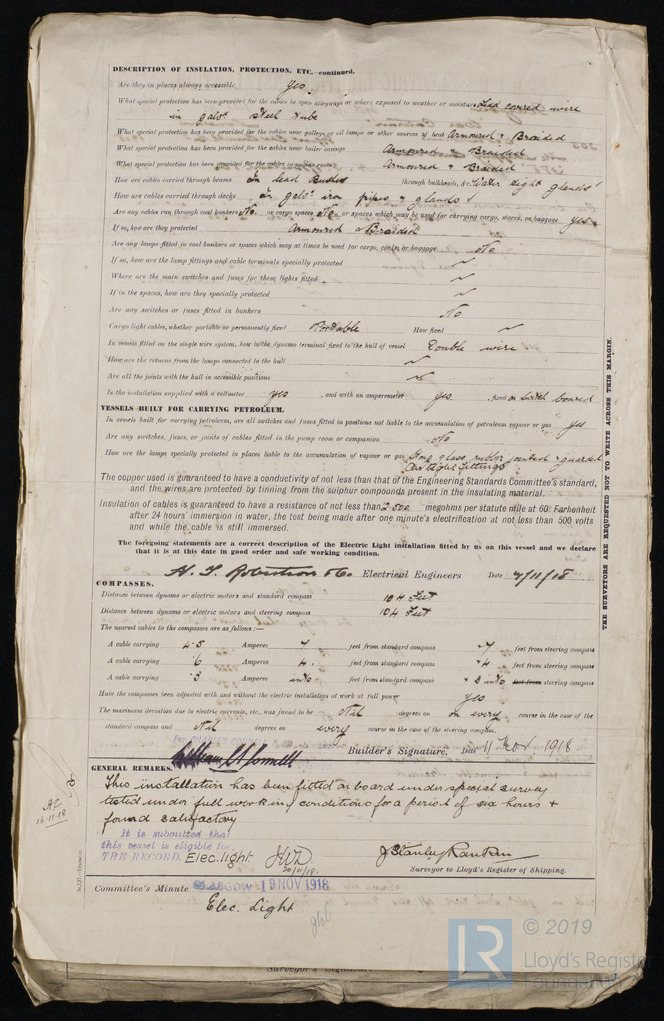 DESCRIPTION OF INSULATION, PROTECTION, ETC.—continued.
Are they in places always accessible Yes.
What special protection has been provided for the cables in open alleyways or where exposed to weather or moisture Lead covered wire
in galvd Steel tube
What special protection has been provided for the cables near galleys or oil lamps or other sources of heat Armoured & Braided
What special protection has been provided for the cables near boiler casings Armoured & Braided
What special protection has been provided for the cables in engine room Armoured & Braided
How are cables carried through beams In lead Bushes through bulkheads, &c. Water tight glands
How are cables carried through decks In galvd iron pipes & glands
Are any cables run through coal bunkers No. or cargo spaces No. or spaces which may be used for carrying cargo, stores, or baggage yes
If so, how are they protected Armoured & Braided
Are any lamps fitted in coal bunkers or spaces which may at times be used for cargo, coals, or baggage No
If so, how are the lamp fittings and cable terminals specially protected ~
Where are the main switches and fuses for these lights fitted ~
If in the spaces, how are they specially protected ~
Are any switches or fuses fitted in bunkers No
Cargo light cables, whether portable or permanently fixed Portable How fixed ~
In vessels fitted on the single wire system, how is the dynamo terminal fixed to the hull of vessel Double wire.
How are the returns from the lamps connected to the hull ~
Are all the joints with the hull in accessible positions ~
Is the installation supplied with a voltmeter yes , and with an amperemeter yes , fixed on Switch board
VESSELS BUILT FOR CARRYING PETROLEUM.
In vessels built for carrying petroleum, are all switches and fuses fitted in positions not liable to the accumulation of petroleum vapour or gas yes
Are any switches, fuses, or joints of cables fitted in the pump room or companion No
How are the lamps specially protected in places liable to the accumulation of vapour or gas glass, rubber jointed & guarded
Air tight fittings
The copper used is guaranteed to have a conductivity of not less than that of the Engineering Standards Committee's standard,
and the wires are protected by tinning from the sulphur compounds present in the insulating material.
Insulation of cables is guaranteed to have a resistance of not less than 2500 megohms per statute mile at 60° Farhenheit
after 24 hours' immersion in water, the test being made after one minute's electrification at not less than 500 volts
and while the cable is still immersed.
The foregoing statements are a correct description of the Electric Light installation fitted by us on this vessel and we declare
that it is at this date in good order and safe working condition.
Robertson & Co. Electrical Engineers Date 7/11/18
COMPASSES.
Distance between dynamo or electric motors and standard compass 104 Feet
Distance between dynamo or electric motors and steering compass 104 Feet
The nearest cables to the compasses are as follows:—
A cable carrying 4.5 Amperes 7 feet from standard compass 7 feet from steering compass
A cable carrying .6 Amperes 4 feet from standard compass 4 feet from steering compass
A cable carrying .3 Amperes into feet from standard compass .3 into feet from steering compass
Have the compasses been adjusted with and without the electric installation at work at full power yes
The maximum deviation due to electric currents, etc., was found to be Nil degrees on on every course in the case of the
standard compass and Nil degrees on every course in the case of the steering compass.
Builder's Signature. Date 11 Nov. 1918
GENERAL REMARKS.
This installation has been fitted on board under special survey
tested under full working conditions for a period of six hours &
found satisfactory
It is submitted that
this vessel is eligible for
THE RECORD. Elec. light.
20/11/18.
J Stanley Rankin
Surveyor to Lloyd's Register of Shipping.
Committee's Minute GLASGOW 19 NOV 1918
Elec. Light
16.11.18
THE SURVEYORS ARE REQUESTED NOT TO WRITE ACROSS THIS MARGIN.
© 2019
LR
Lloyd's Register
Foundation